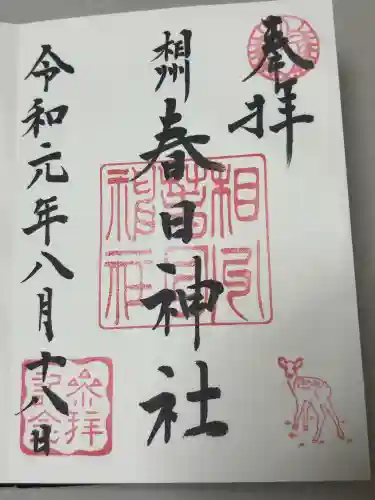 奉拝
相州
春日神社
令和元年八月十八日
相州春日神社
参拝記念